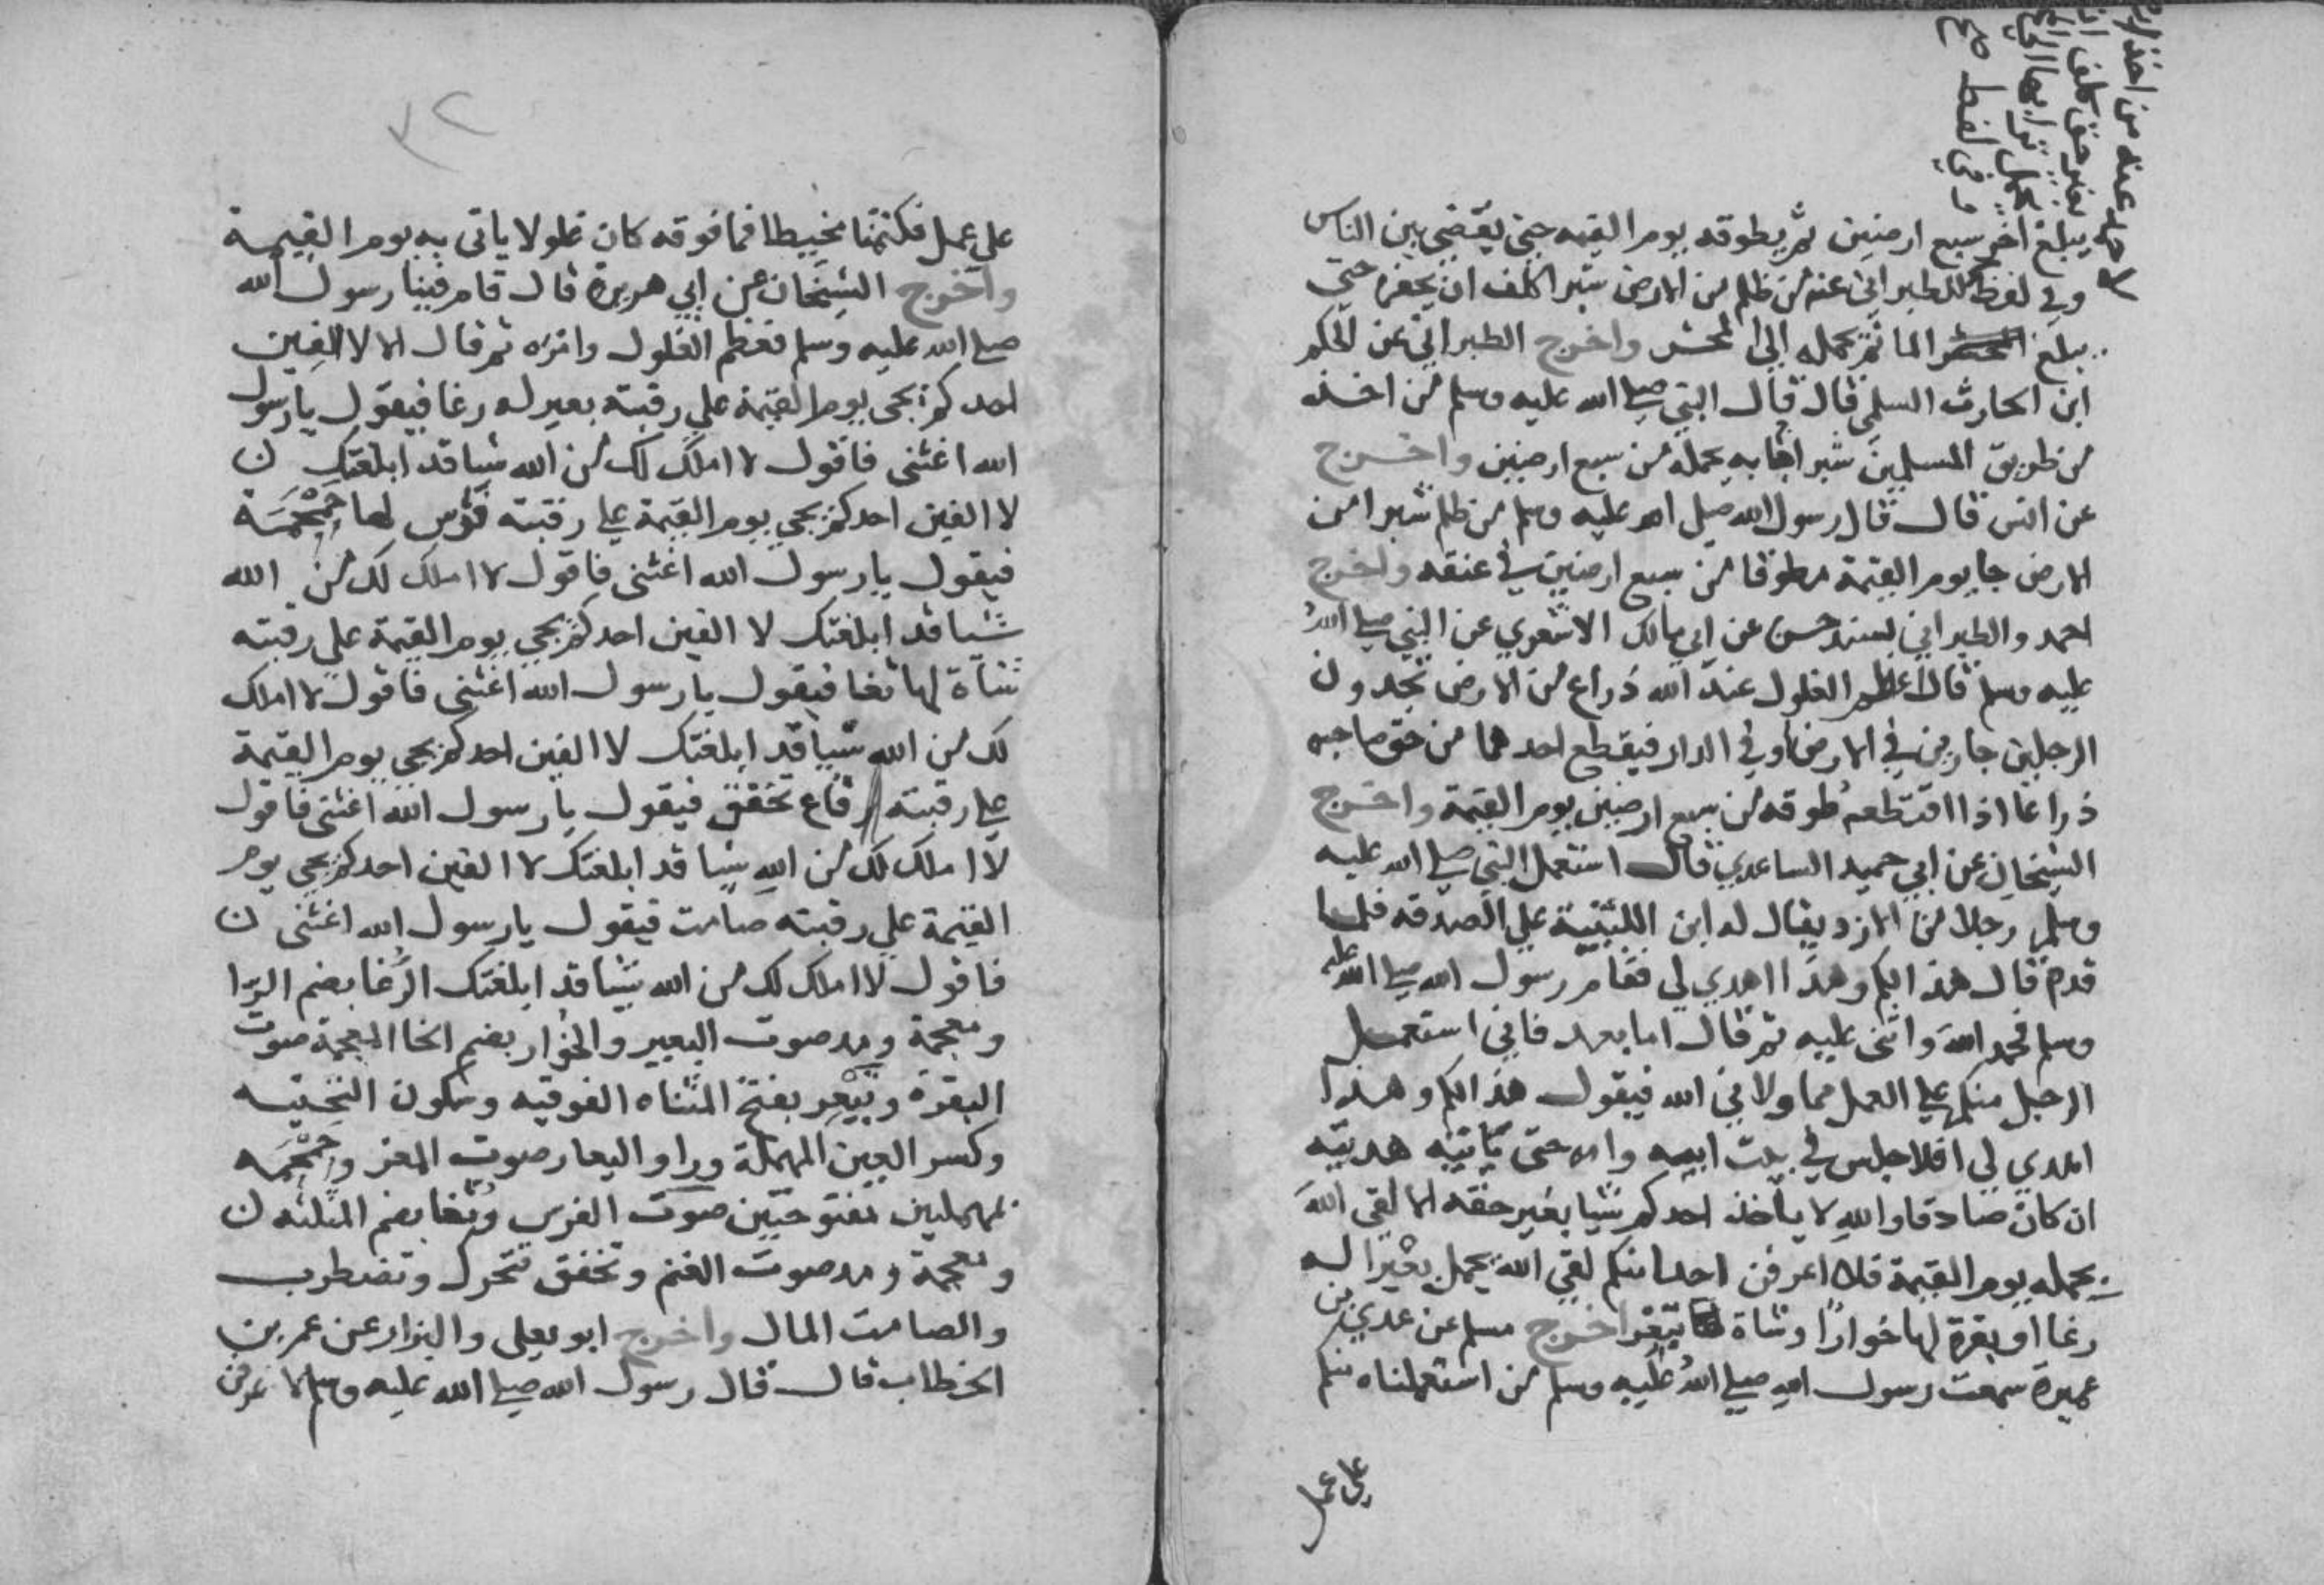 لاحمد عنه من اخذ ارضا
بغير حق كلف ان
يحمل ترابها الي المحشر
وفي لفظ
يبلغ اخر سبع ارضين ثم يطوقه يوم القيمه حتي يقضي بين الناس
وفي لفظ للطبراني عنه من ظلم من الارض شبرا كلف ان يحفره حتي
يبلغ الما ثم يحمله الي المحشر واخرج الطبراني عن الحكم
ابن الحارث السلمي قال قال النبي صلي الله عليه وسلم من اخذ
من طريق المسلمين شبرا جا به يحمله من سبع ارضين واخرج
عن انس قال قال رسول الله صلي الله عليه وسلم من ظلم شبرا من
الارض جا يوم القيمة مطوقا من سبع ارضين في عنقه واخرج
احمد والطبراني بسند حسن عن ابي مالك الاشعري عن النبي صلي الله
عليه وسلم قال اعظم الغلول عند الله ذراع من الارض تجدون
الرجلين جارين في الارض او في الدار فيقطع احدهما من حق صاحبه
ذراعا اذا اقتطعه طوقه من سبع ارضين يوم القيمة واخرج
الشيخان عن ابي حميد الساعدي قال استعمل النبي صلي الله عليه
وسلم رجلا من الازد يقال له ابن اللتبية علي الصدقه فلما
قدم قال هذا لكم وهذا اهدي لي فقام رسول الله صلي الله عليه
وسلم فحمد الله واثني عليه ثم قال اما بعد فاني استعمل
الرجل منكم علي العمل مما ولاني الله فيقول هذا لكم وهذا
اهدي لي افلا جلس في بيت ابيه وامه حتي تاتيه هديته
ان كان صادقا والله لا ياخذ احدكم شيا بغير حقه الا لقي الله
يحمله يوم القيمة فلا اعرفن احدا منكم لقي الله يحمل بعيرا له
رغا او بقرة لها خوارا وشاة تيعر اخرج مسلم عن عدي بن
عميرة سمعت رسول الله صلي الله عليه وسلم من استعملناه منكم
علي عمل
٣٢
علي عمل فكتمنا مخيطا فما فوقه كان غلولا ياتي به يوم القيمة
واخرج الشيخان عن ابي هريرة قال قام فينا رسول الله
صلي الله عليه وسلم فعظم الغلول وامره ثم قال الا لا الفين
احدكم يجي يوم القيمة علي رقبته بعير له رغا فيقول يا رسول
الله اغثني فاقول لا املك لك من الله شيا قد ابلغتك
لا الفين احدكم يجي يوم القيمة علي رقبته فرس لها حمحمة
فيقول يا رسول الله اغثني فاقول لا املك لك من الله
شيا قد ابلغتك لا الفين احدكم يجي يوم القيمة علي رقبته
شاة لها ثغا فيقول يا رسول الله اغثني فاقول لا املك
لك من الله شيا قد ابلغتك لا الفين احدكم يجي يوم القيمة
علي رقبته رقاع تخفق فيقول يا رسول الله اغثني فاقول
لا املك لك من الله شيا قد ابلغتك لا الفين احدكم يجي يوم
القيمة علي رقبته صامت فيقول يا رسول الله اغثني
فاقول لا املك لك من الله شيا قد ابلغتك الرغا بضم الرا
ومعجمة ومد صوت البعير والخوار بضم الخا المعجمة صوت
البقرة وتيعر بفتح المثناه الفوقيه وسكون التحتيه
وكسر العين المهملة ورا واليعار صوت المعز وحمحمه
بمهملتين مفتوحتين صوت الفرس وثغا بضم المثلثه
ومعجمة ومد صوت الغنم وتخفق تتحرك وتضطرب
والصامت المال واخرج ابو يعلي والبزار عن عمر بن
الخطاب قال قال رسول الله صلي الله عليه وسلم لا عرفن